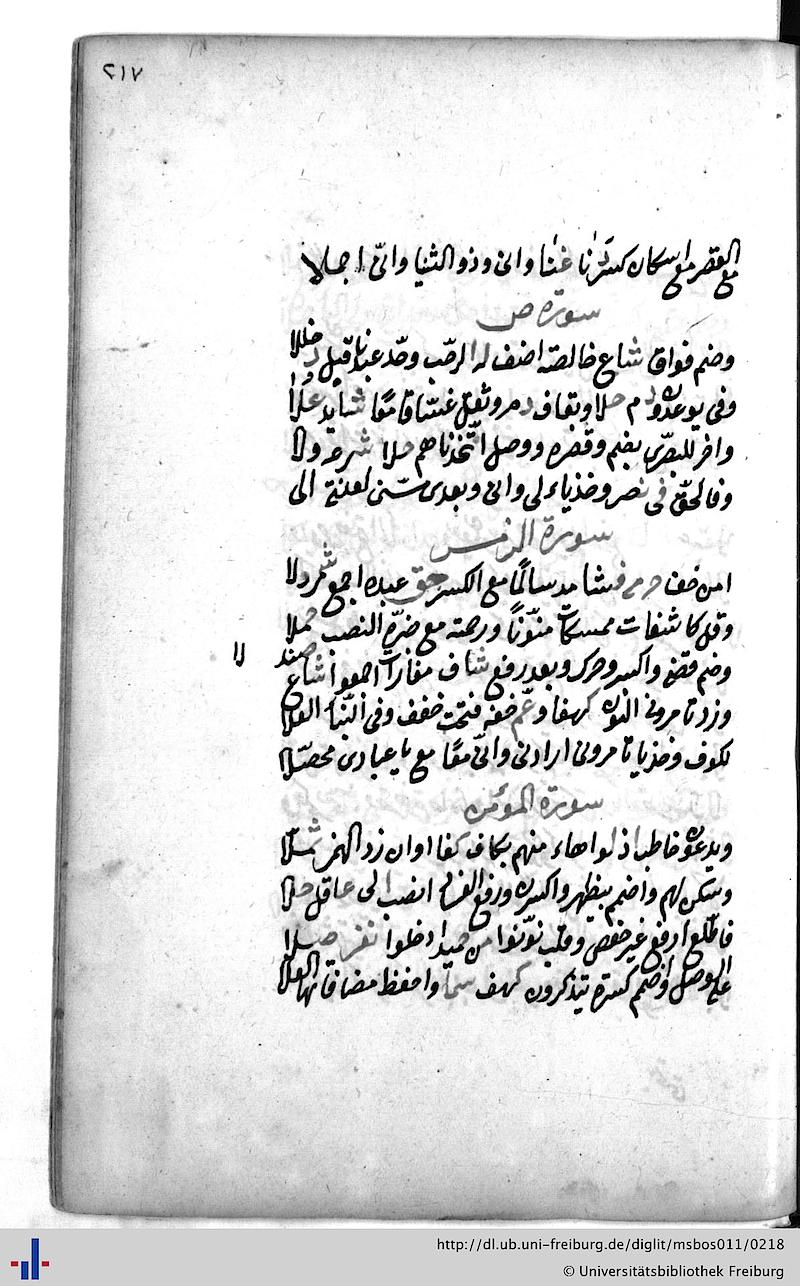 ٢١٧
مع القصر مع اسكان كسر دنا غنا وانى وذو الثنيا وانّى اجملا
سورة ص
وضم فواق شاع خالصة اضف له الرحب وحّد عبدنا قبل دخللا
وفى يوعدون دم حلا وبقاف دم وثقل غسّاقا معًا شايد عُلَا
واخر للبصرى بضم وقصره ووصل اتّخذناهم حلا شرعه ولا
وفالحقّ فى نصر وخذ ياء لى وانى وبعدى مسّنى لعنتى الى
سورة الزمر
امن خف حرمى فشا مد سالمًا مع الكسر حق عبده اجمع شمردلا
وقل كاشفات ممسكات منوّنًا ورحمته مع ضرّه النصب حملا
وضم قضى واكسر وحرك وبعد رفع شاف مفازات اجمعوا شاع صندلا
وزد تامرونى النون كهفا وعّم خفه فتحت خفف وفى النّبا العلا
لكوف وخذ يا تامرونى ارادنى وانّى معًا مع يا عبادى محصّلا
سورة المؤمن
ويدعون خاطب اذ لوا هاء منهم بكاف كفا او ان زد الهمز ثمّلا
وسكن لهم واضمم بيظهر واكسرن ورفع الفساد انصب الى عاقل حلا
فاطّلع ارفع غير حفص وقلب نوّنوا من حميد ادخلوا نفر صلا
على الوصل واضمم كسره يتذكرون كهف سما واحفظ مضافاتها العلا
http://dl.ub.uni-freiburg.de/diglit/msbos011/0218
© Universitätsbibliothek Freiburg